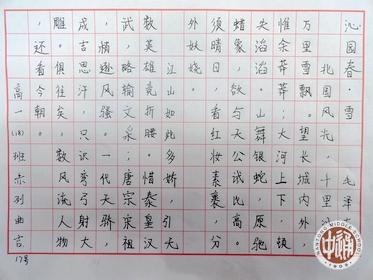 沁园春·雪 毛泽东
北国风光，千里冰封，
万里雪飘。望长城内外，
惟余莽莽；大河上下，顿
失滔滔。山舞银蛇，原驰
蜡象，欲与天公试比高。
须晴日，看红妆素裹，分
外妖娆。
江山如此多娇，引无
数英雄竞折腰。惜秦皇汉
武，略输文采；唐宗宋祖
，稍逊风骚。一代天骄，
成吉思汗，只识弯弓射大
雕。俱往矣，数风流人物
，还看今朝。
高一(18)班赤列曲吉
17号